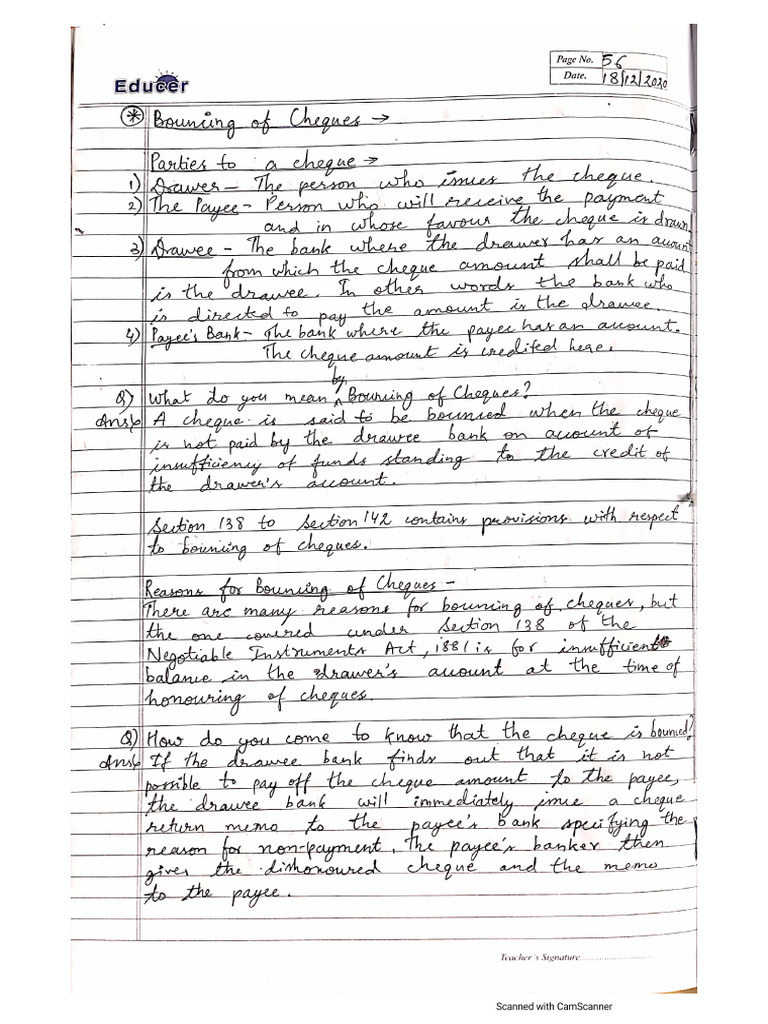 Educer
Page No. 56
Date. 18/12/2020
* Bouncing of Cheques →
Parties to a cheque →
1) Drawer – The person who issues the cheque.
2) The Payee – Person who will receive the payment
and in whose favour the cheque is drawn
3) Drawee – The bank where the drawer has an account
from which the cheque amount shall be paid
is the drawee. In other words the bank who
is directed to pay the amount is the drawee.
4) Payee's Bank – The bank where the payee has an account.
The cheque amount is credited here.
Q) What do you mean by Bouncing of Cheques?
Ans:
A cheque is said to be bounced when the cheque
is not paid by the drawee bank on account of
insufficiency of funds standing to the credit of
the drawer's account.
Section 138 to Section 142 contains provisions with respect
to bouncing of cheques.
Reasons for Bouncing of Cheques –
There are many reasons for bouncing of cheques, but
the one covered under Section 138 of the
Negotiable Instruments Act, 1881 is for insufficient
balance in the drawer's account at the time of
honouring of cheques.
Q) How do you come to know that the cheque is bounced?
Ans: If the drawee bank finds out that it is not
possible to pay off the cheque amount to the payee,
the drawee bank will immediately issue a cheque
return memo to the payee's bank specifying the
reason for non-payment. The payee's banker then
gives the dishonoured cheque and the memo
to the payee.
Teacher's Signature..........................
Scanned with CamScanner